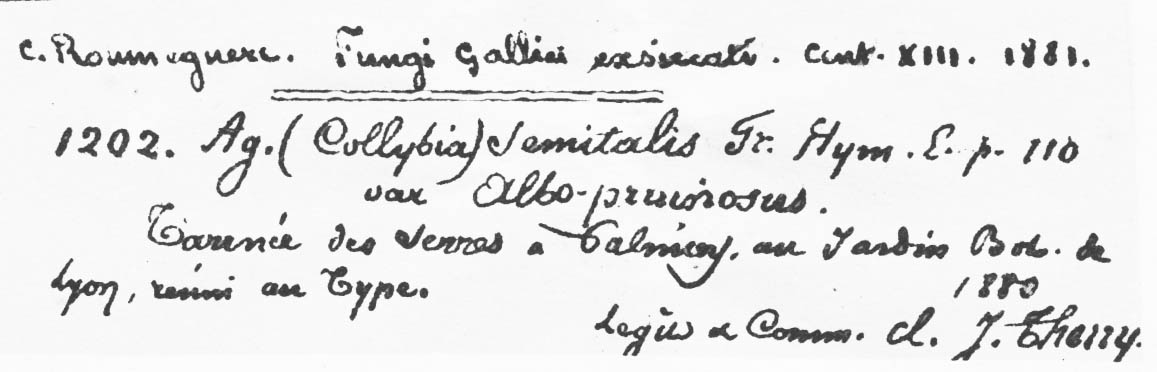 C. Roumeguere. Fungi Gallici exsiccati. Cent. XIII. 1881.
1202. Ag. (Collybia) Semitalis Fr. Hym. E. p. 110
var Albo-pruinosus.
Tannée des Serres à Palmiers, au Jardin Bot. de
Lyon, réuni au Type.
1880
Legit & Comm. cl. J. Therry.